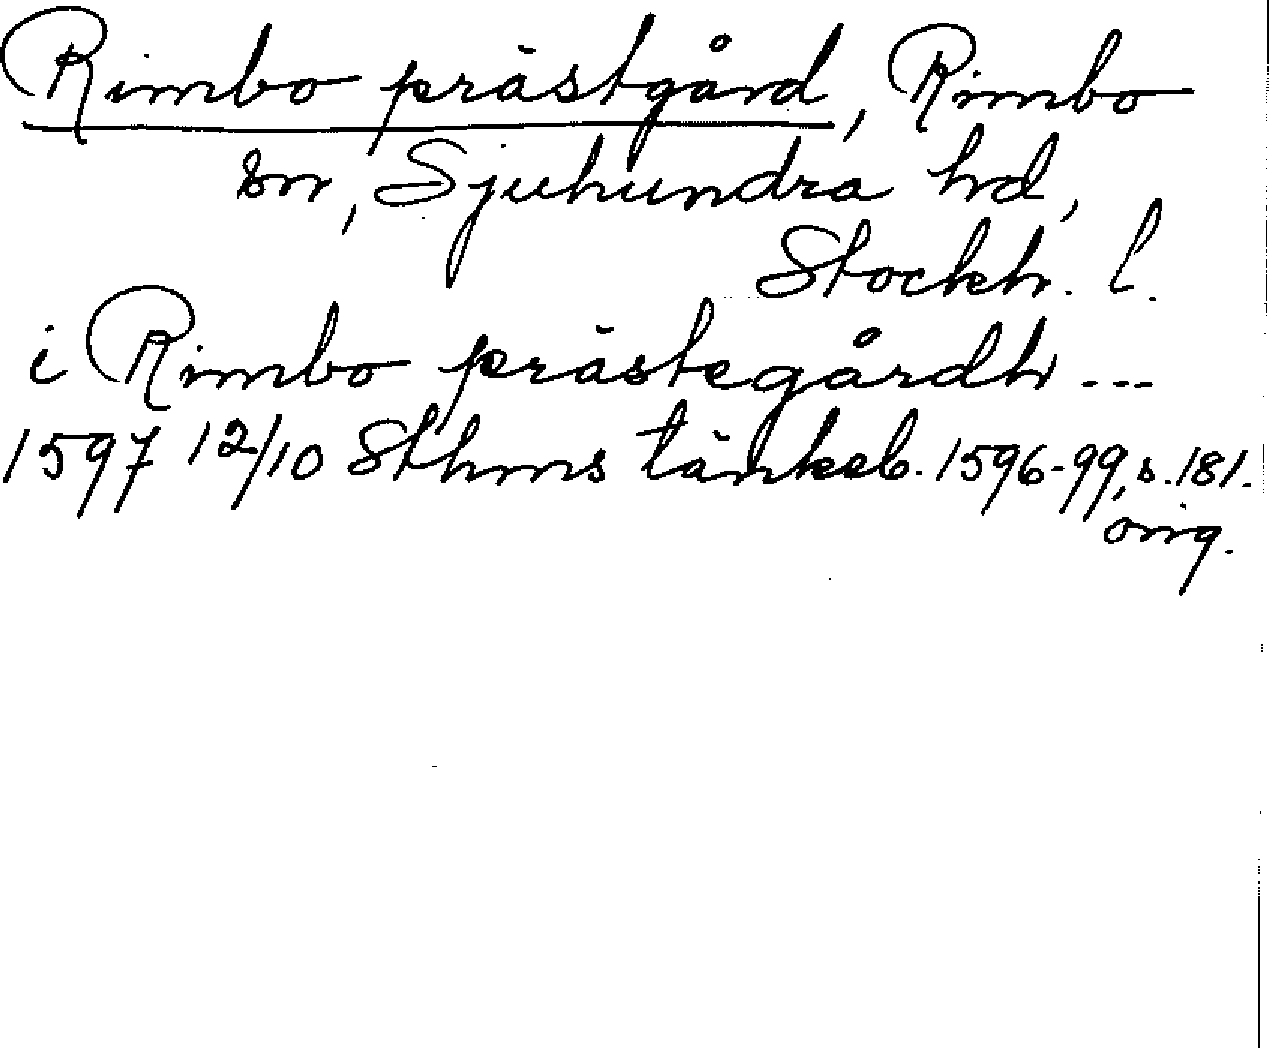 Rimbo prästgård, Rimbo
sn, Sjuhundra hd,
Stockh. l.
i Rimbo prästegårdh ---
1597 12/10 Sthms tänkeb. 1596-99, s. 181.
orig.